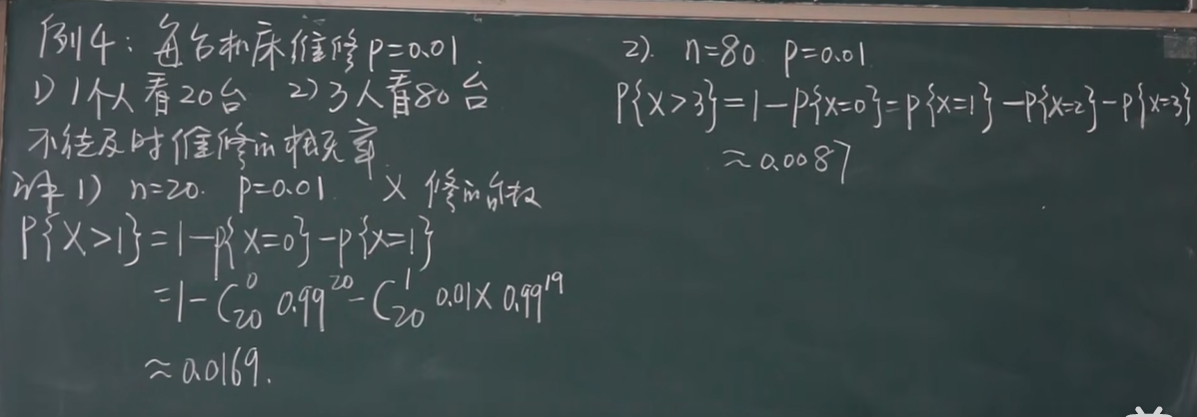 例4：每台机床维修p=0.01.
1) 1个人看20台 2) 3人看80台
不能及时维修的概率
解 1) n=20. p=0.01 X 修的台数
P{X>1}=1-P{X=0}-P{X=1}
=1-C₂₀⁰ 0.99²⁰-C₂₀¹ 0.01×0.99¹⁹
≈0.0169.
2). n=80 p=0.01
P{X>3}=1-P{X=0}=P{X=1}-P{X=2}-P{X=3}
≈0.0087